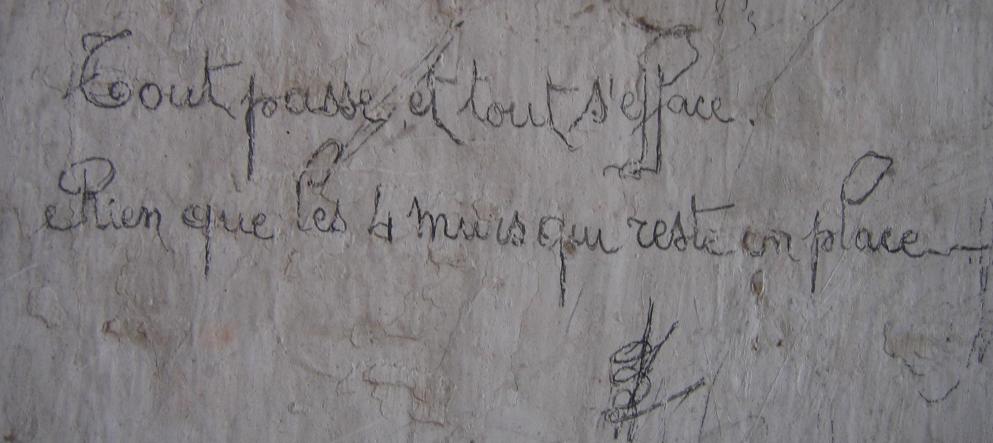 Tout passe et tout s'efface.
Rien que les 4 murs qui reste en place